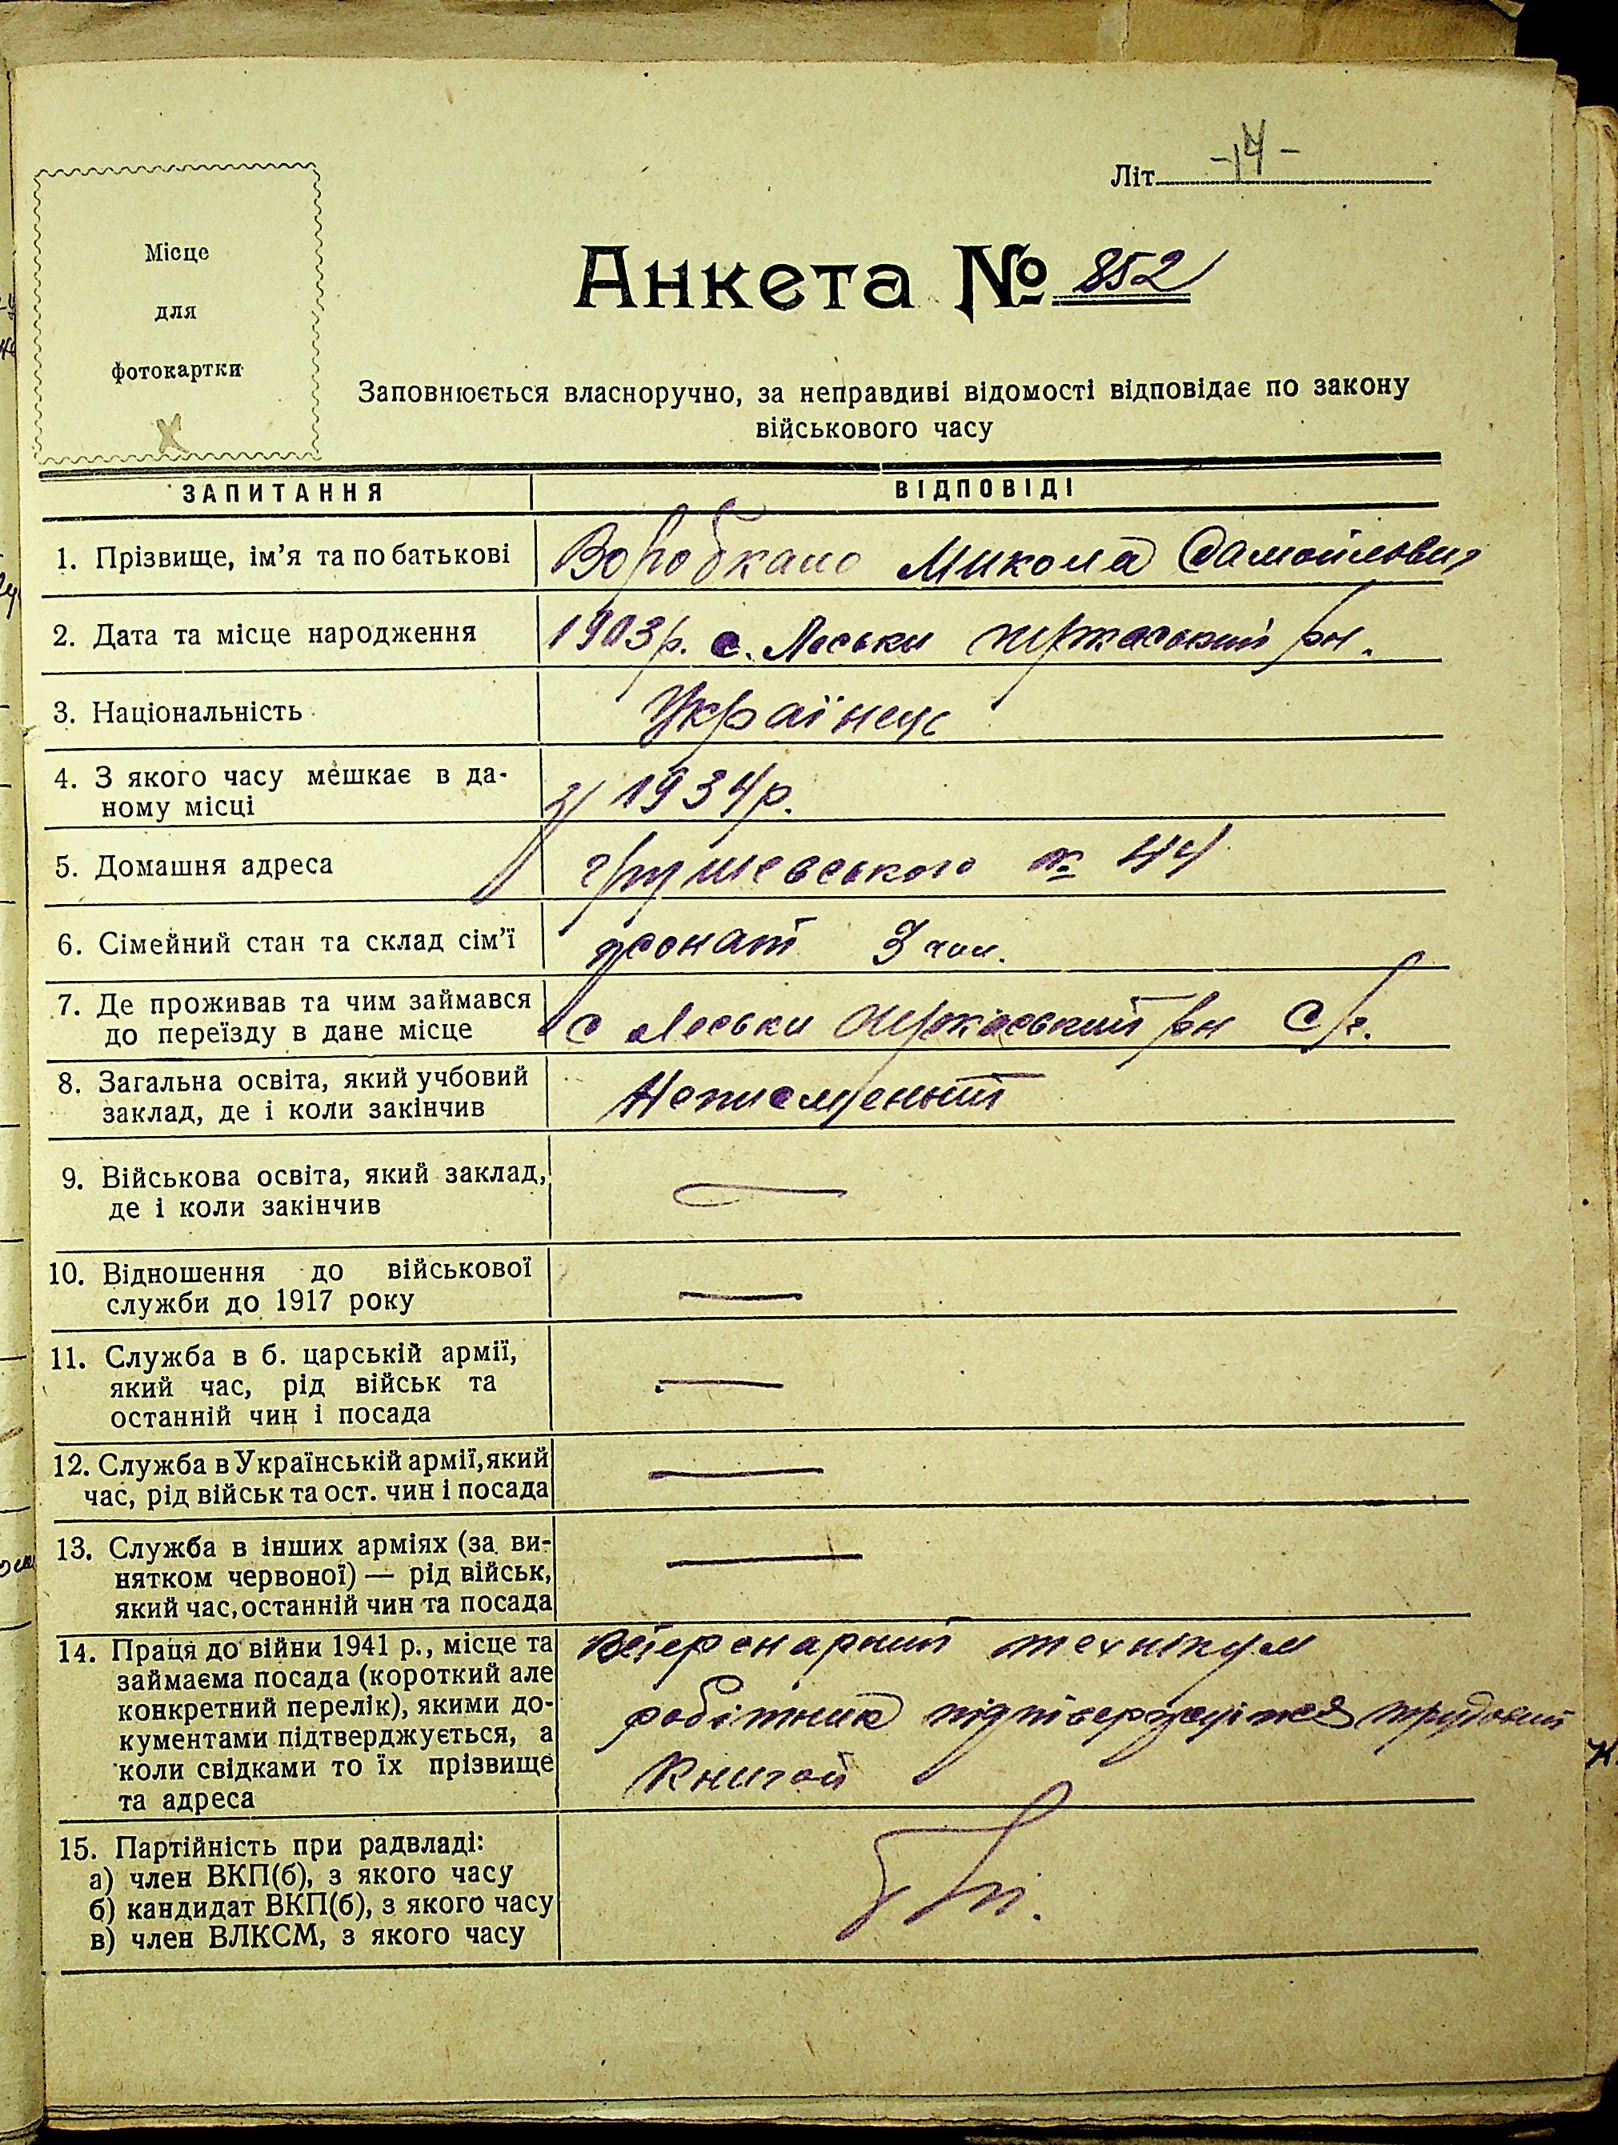 Літ. -14-
Місце
для
фотокартки
Анкета № 852
Заповнюється власноручно, за неправдиві відомості відповідає по закону
військового часу
ЗАПИТАННЯ ВІДПОВІДІ
1. Прізвище, ім'я та по батькові Микола Самойлович
2. Дата та місце народження 1903 р. с. Леськи Черкаський рн.
3. Національність Українець
4. З якого часу мешкає в да-
ному місці З 1934 р.
5. Домашня адреса Грушевського № 44
6. Сімейний стан та склад сім'ї жонат 3 чол.
7. Де проживав та чим займався
до переїзду в дане місце с Леськи Черкаський рн С/г.
8. Загальна освіта, який учбовий
заклад, де і коли закінчив Неписменний
9. Військова освіта, який заклад,
де і коли закінчив —
10. Відношення до військової
служби до 1917 року —
11. Служба в б. царській армії,
який час, рід військ та
останній чин і посада —
12. Служба в Українській армії, який
час, рід військ та ост. чин і посада —
13. Служба в інших арміях (за ви-
нятком червоної) — рід військ,
який час, останній чин та посада —
14. Праця до війни 1941 р., місце та
займаєма посада (короткий але
конкретний перелік), якими до-
кументами підтверджується, а
коли свідками то їх прізвище
та адреса
технікум
робітник
книгой
15. Партійність при радвладі:
а) член ВКП(б), з якого часу
б) кандидат ВКП(б), з якого часу
в) член ВЛКСМ, з якого часу